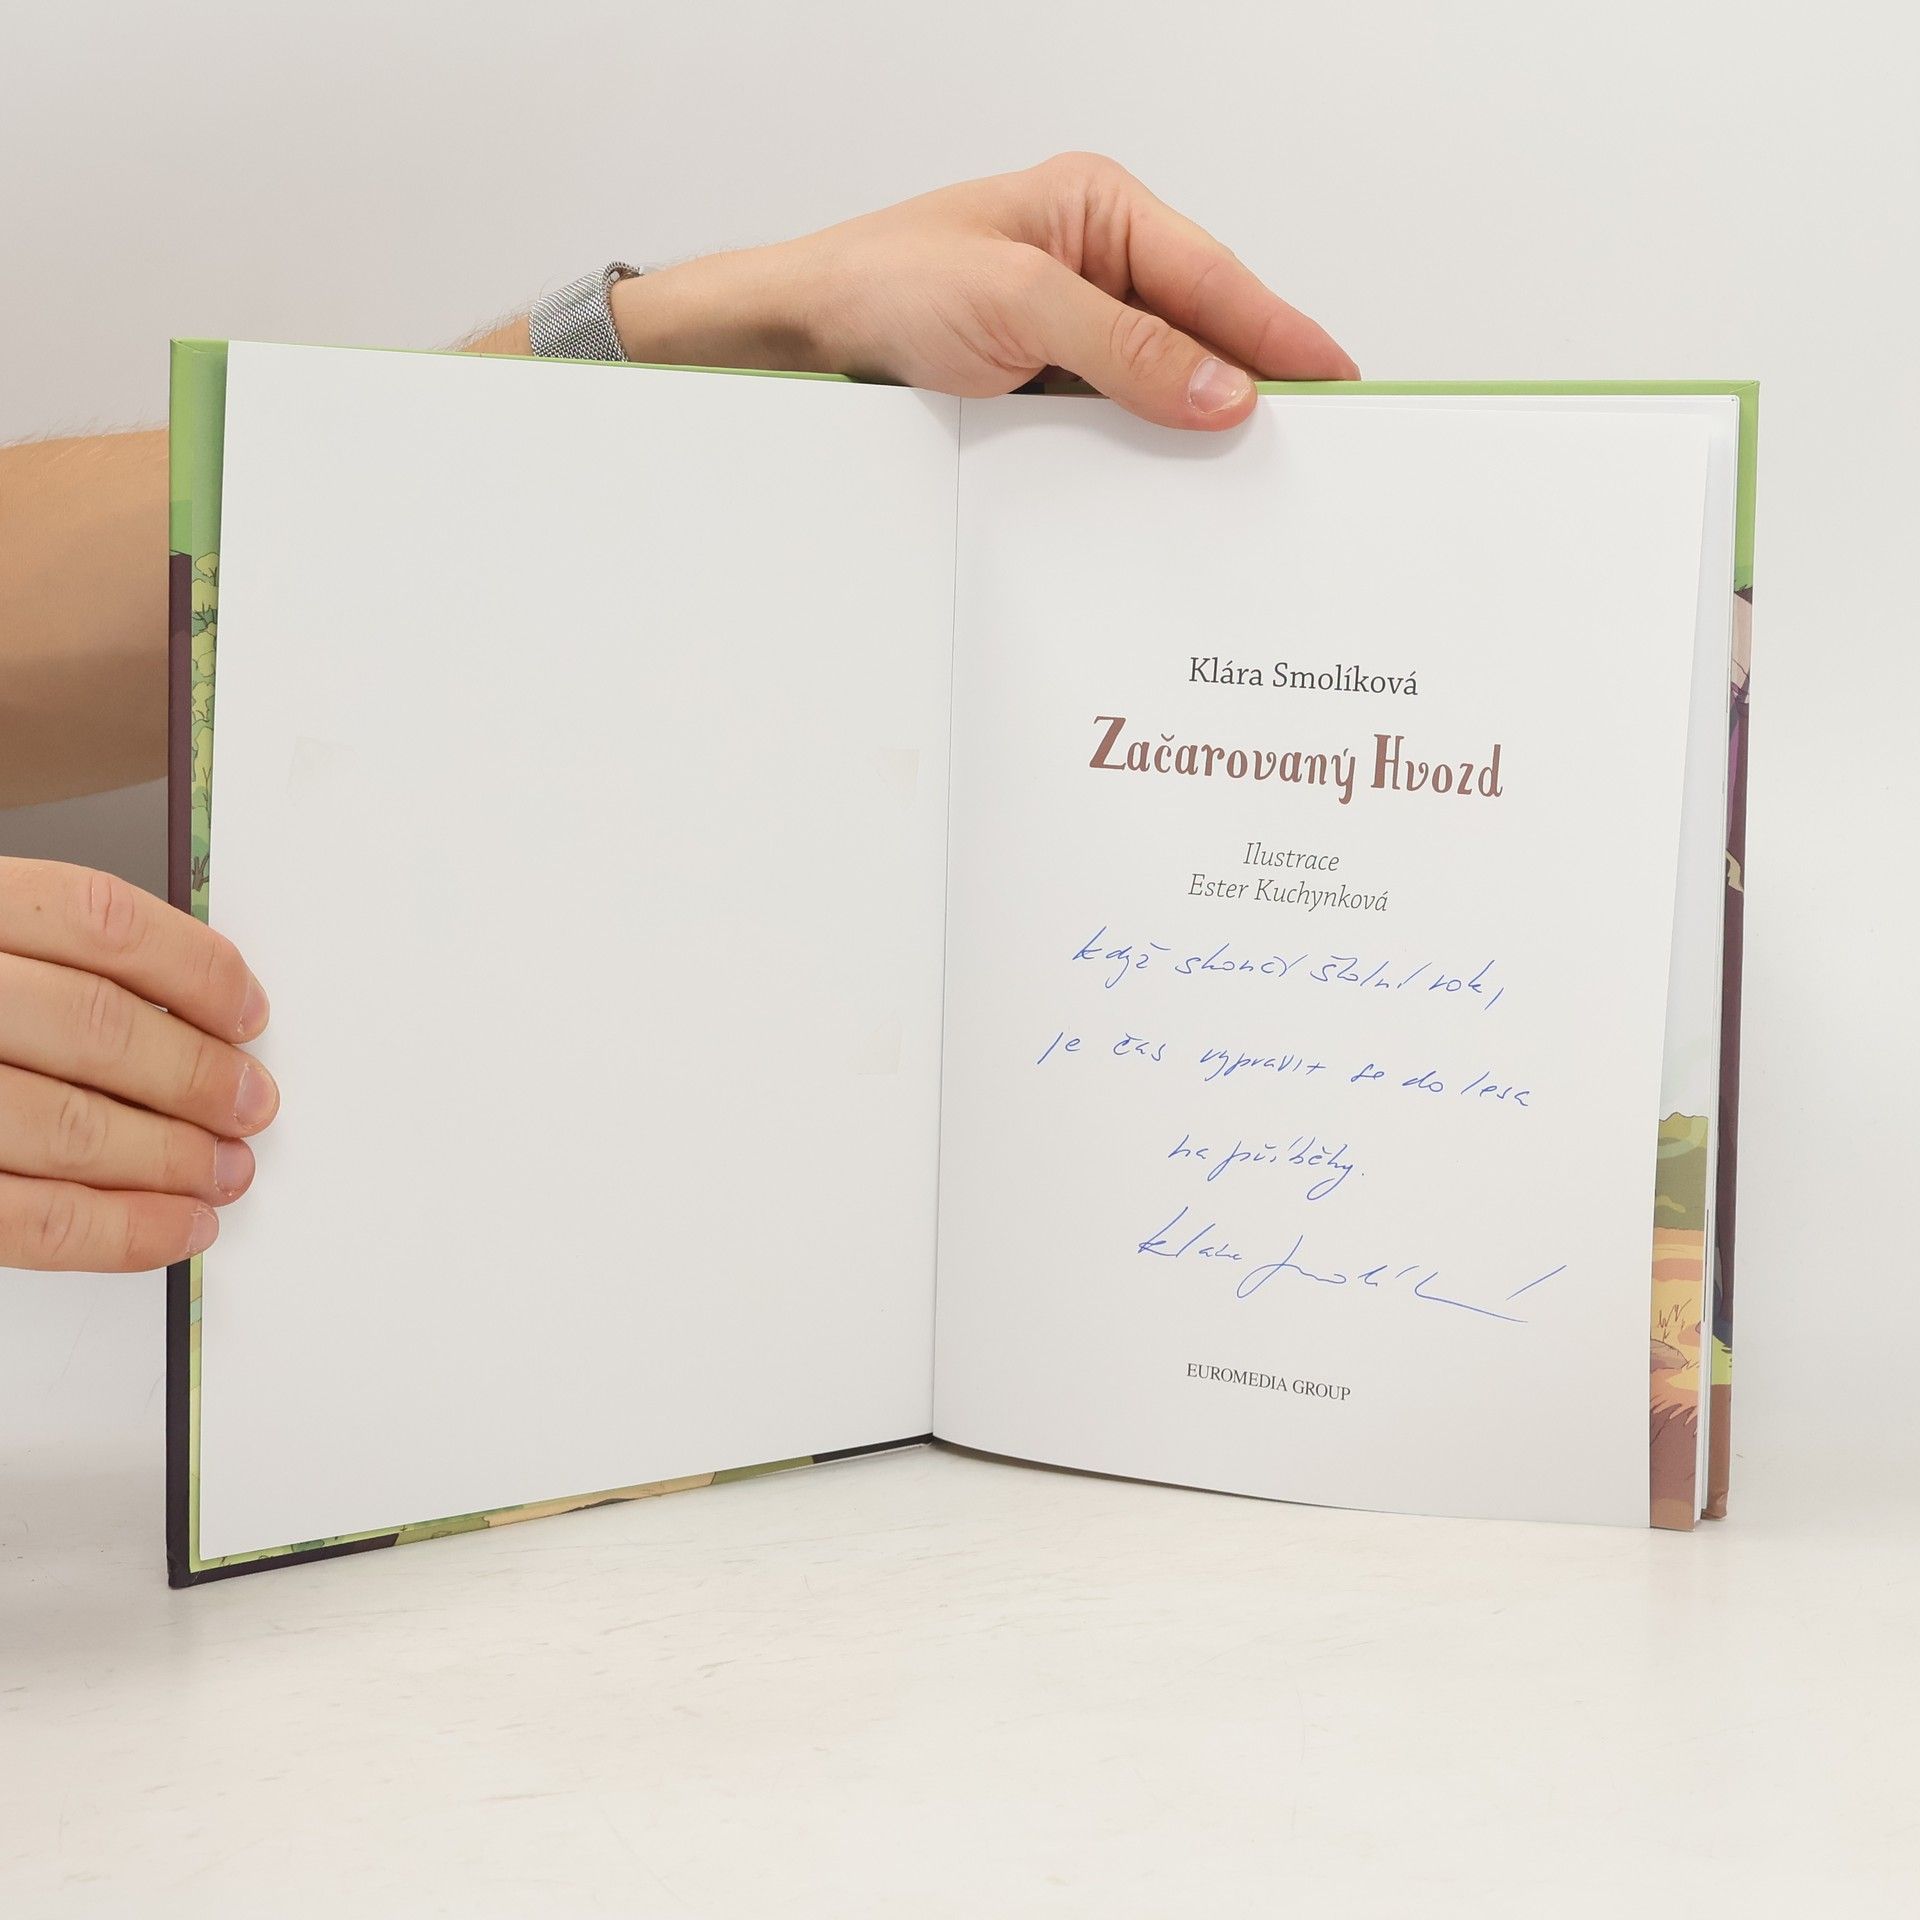 Klára Smolíková
Začarovaný Hvozd
Ilustrace
Ester Kuchynková
když skončí školní rok,
je čas vypravit se do lesa
na příběhy.
Klára Smolíková
EUROMEDIA GROUP